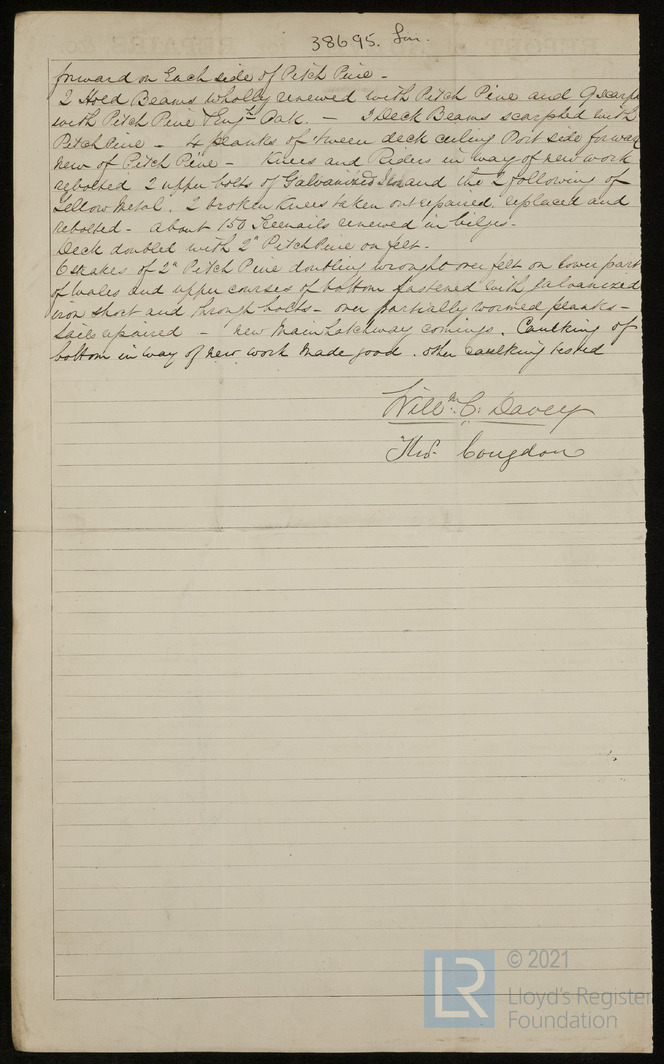 38695. Lon.
forward on Each side of Pitch Pine -
2 Hold Beams wholly renewed with Pitch Pine and 9 scarp
with Pitch Pine & Eng. Oak. - 2 Deck Beams scarphed with
Pitch Pine - 4 planks of tween deck ceiling Port side forwar
new of Pitch Pine - Knees and Riders in way of new work
rebolted 2 upper bolts of Galvanized Iron and the 2 following of
Yellow Metal. 2 broken Knees taken out repaired, replaced and
rebolted - about 150 Treenails renewed in bilges.
Deck doubled with 2" Pitch Pine on felt.
6 strakes of 2" Pitch Pine doubling wrought over felt on lower part
of wales and upper courses of bottom fastened with galvanized
iron short and through bolts - over partially wormed planks -
Sails repaired - new Main hatchway comings. Caulking of
bottom in way of new work made good. other caulking tested
Willm. C. Davey
Thos. Congdon
© 2021
LR
Lloyd's Register
Foundation